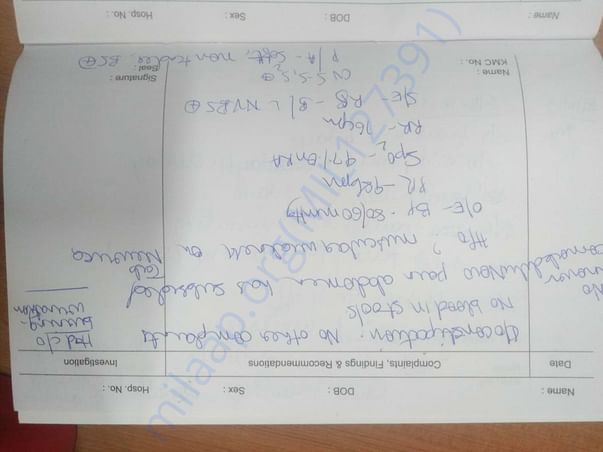 Name : DOB : Sex : Hosp. No. :
Date Complaints, Findings & Recommendations Investigation
c/o constipation. No other complaints
No blood in stools
Now pain abdomen has subsided
H/o ? muscular weakness on
Tab
No
Had c/o
burning
O/E - BP - 80/60 mmHg
PR - 98 bpm
SpO2 - 97% on RA
RR - 16 cpm
S/E - RS - B/L NVBS ⊕
CVS - S1S2 ⊕
P/A - Soft, non tender, BS ⊕
Name :
KMC No. :
Signature :
Seal :
Name : DOB : Sex : Hosp. No. :
milaap.org(MIL127391)